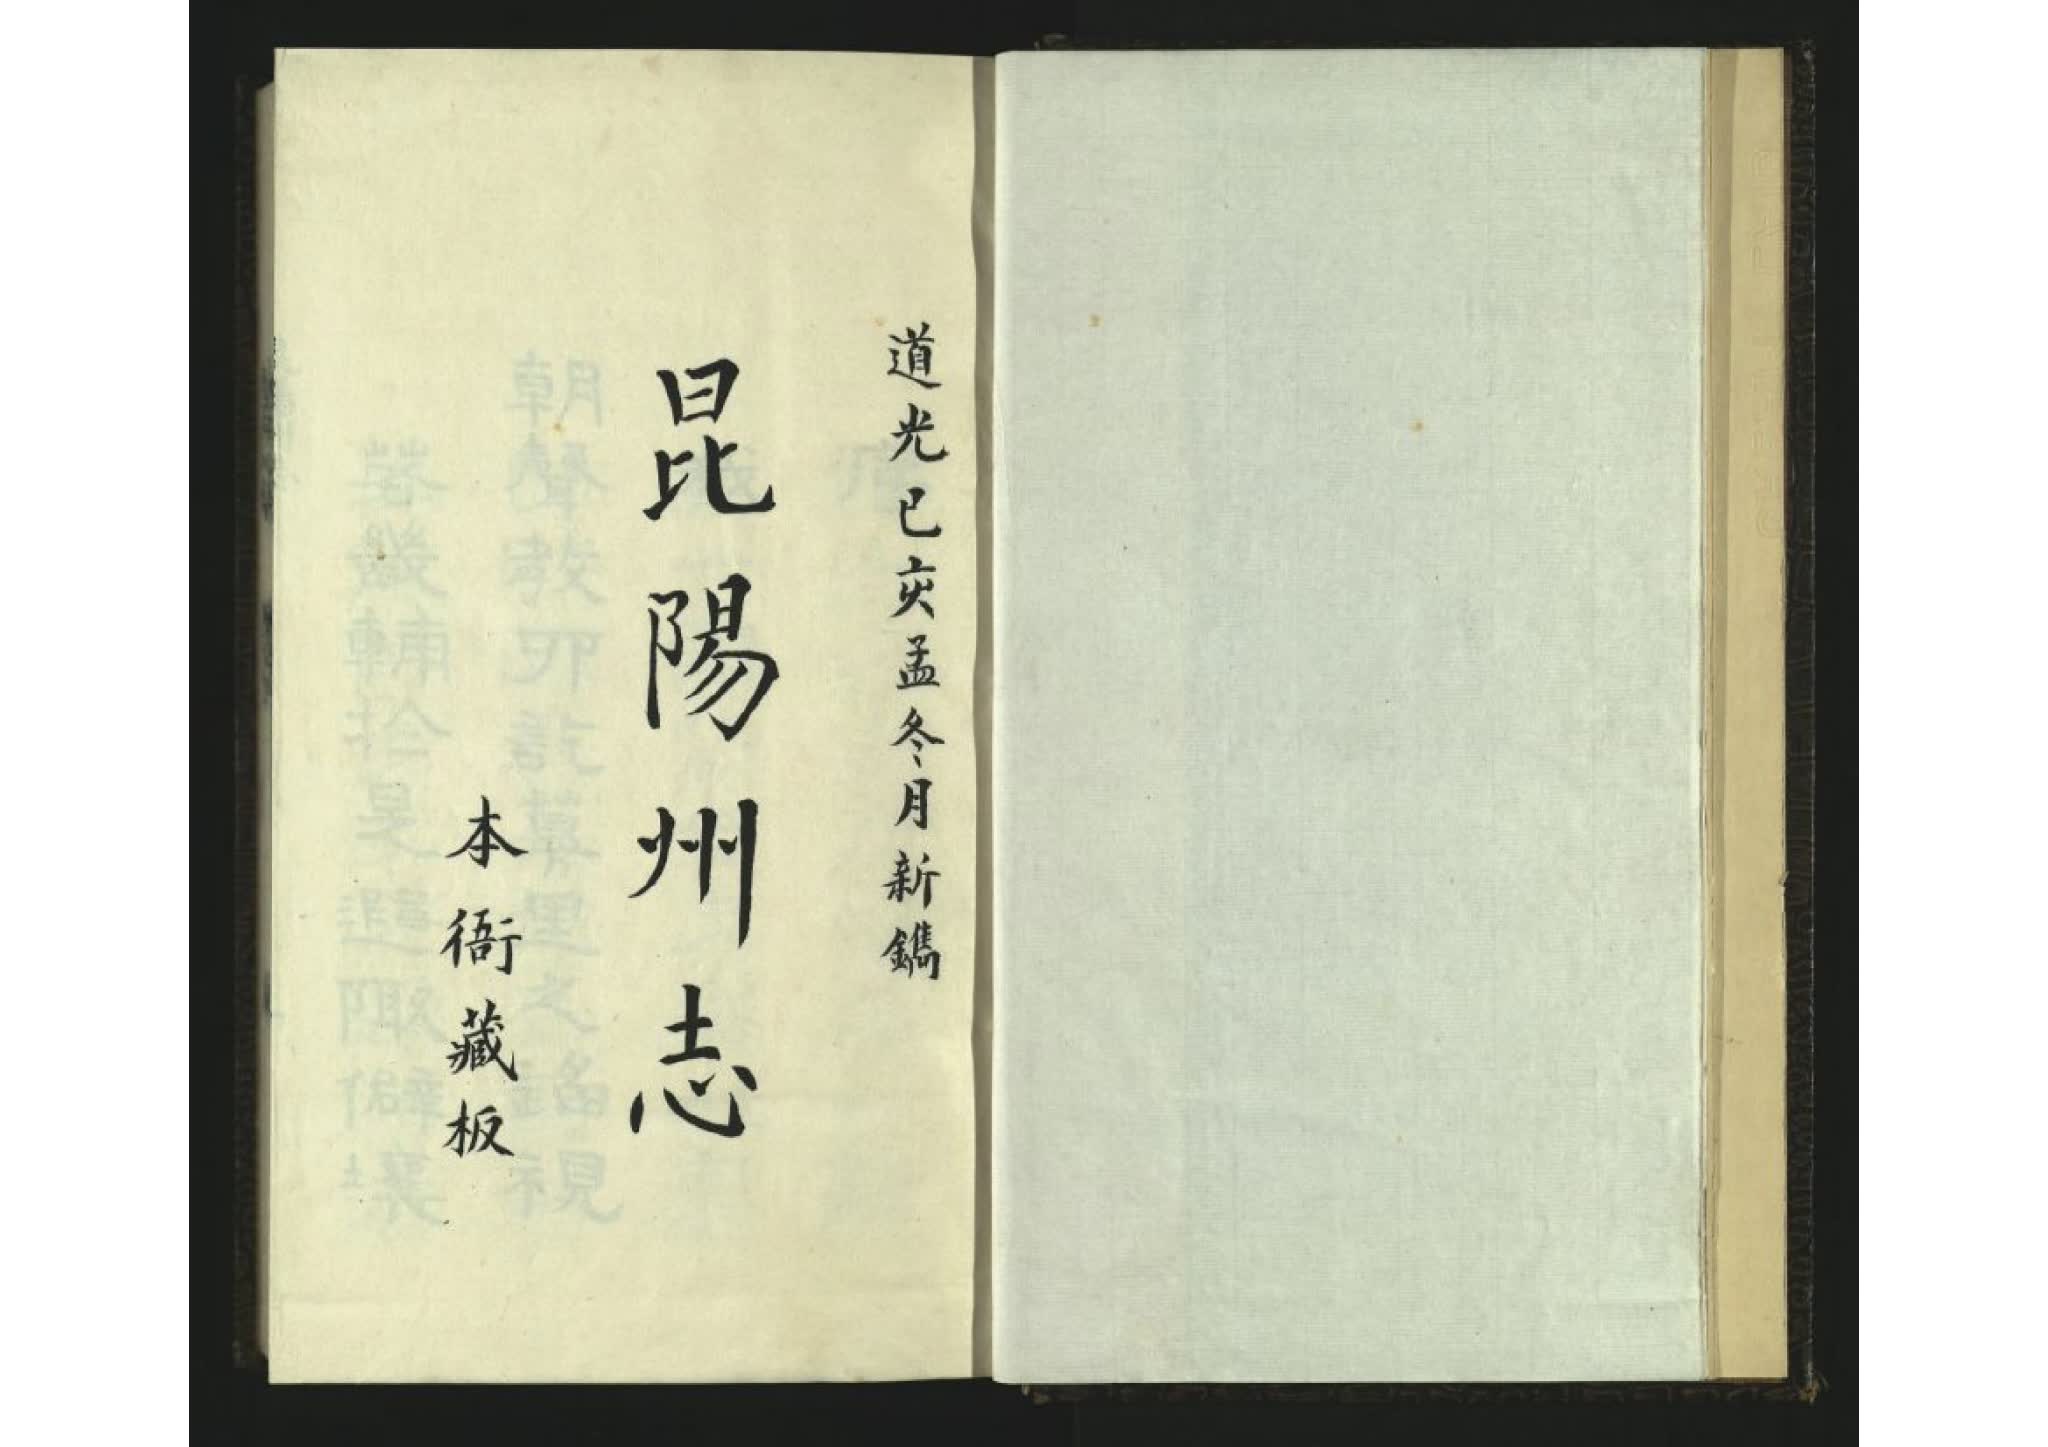 道光已亥孟冬月新鐫
昆陽州志
本衙藏板